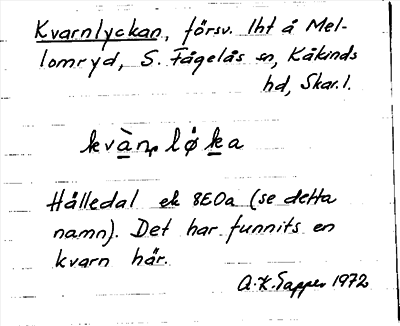 Kvarnlyckan, försv. lht å Mel-
lomryd, S. Fågelås sn, Kåkinds
hd, Skar. l.
kvàn løka
Hålledal ek 8E0a (se detta
namn). Det har funnits en
kvarn här.
A.K. Sapper 1972